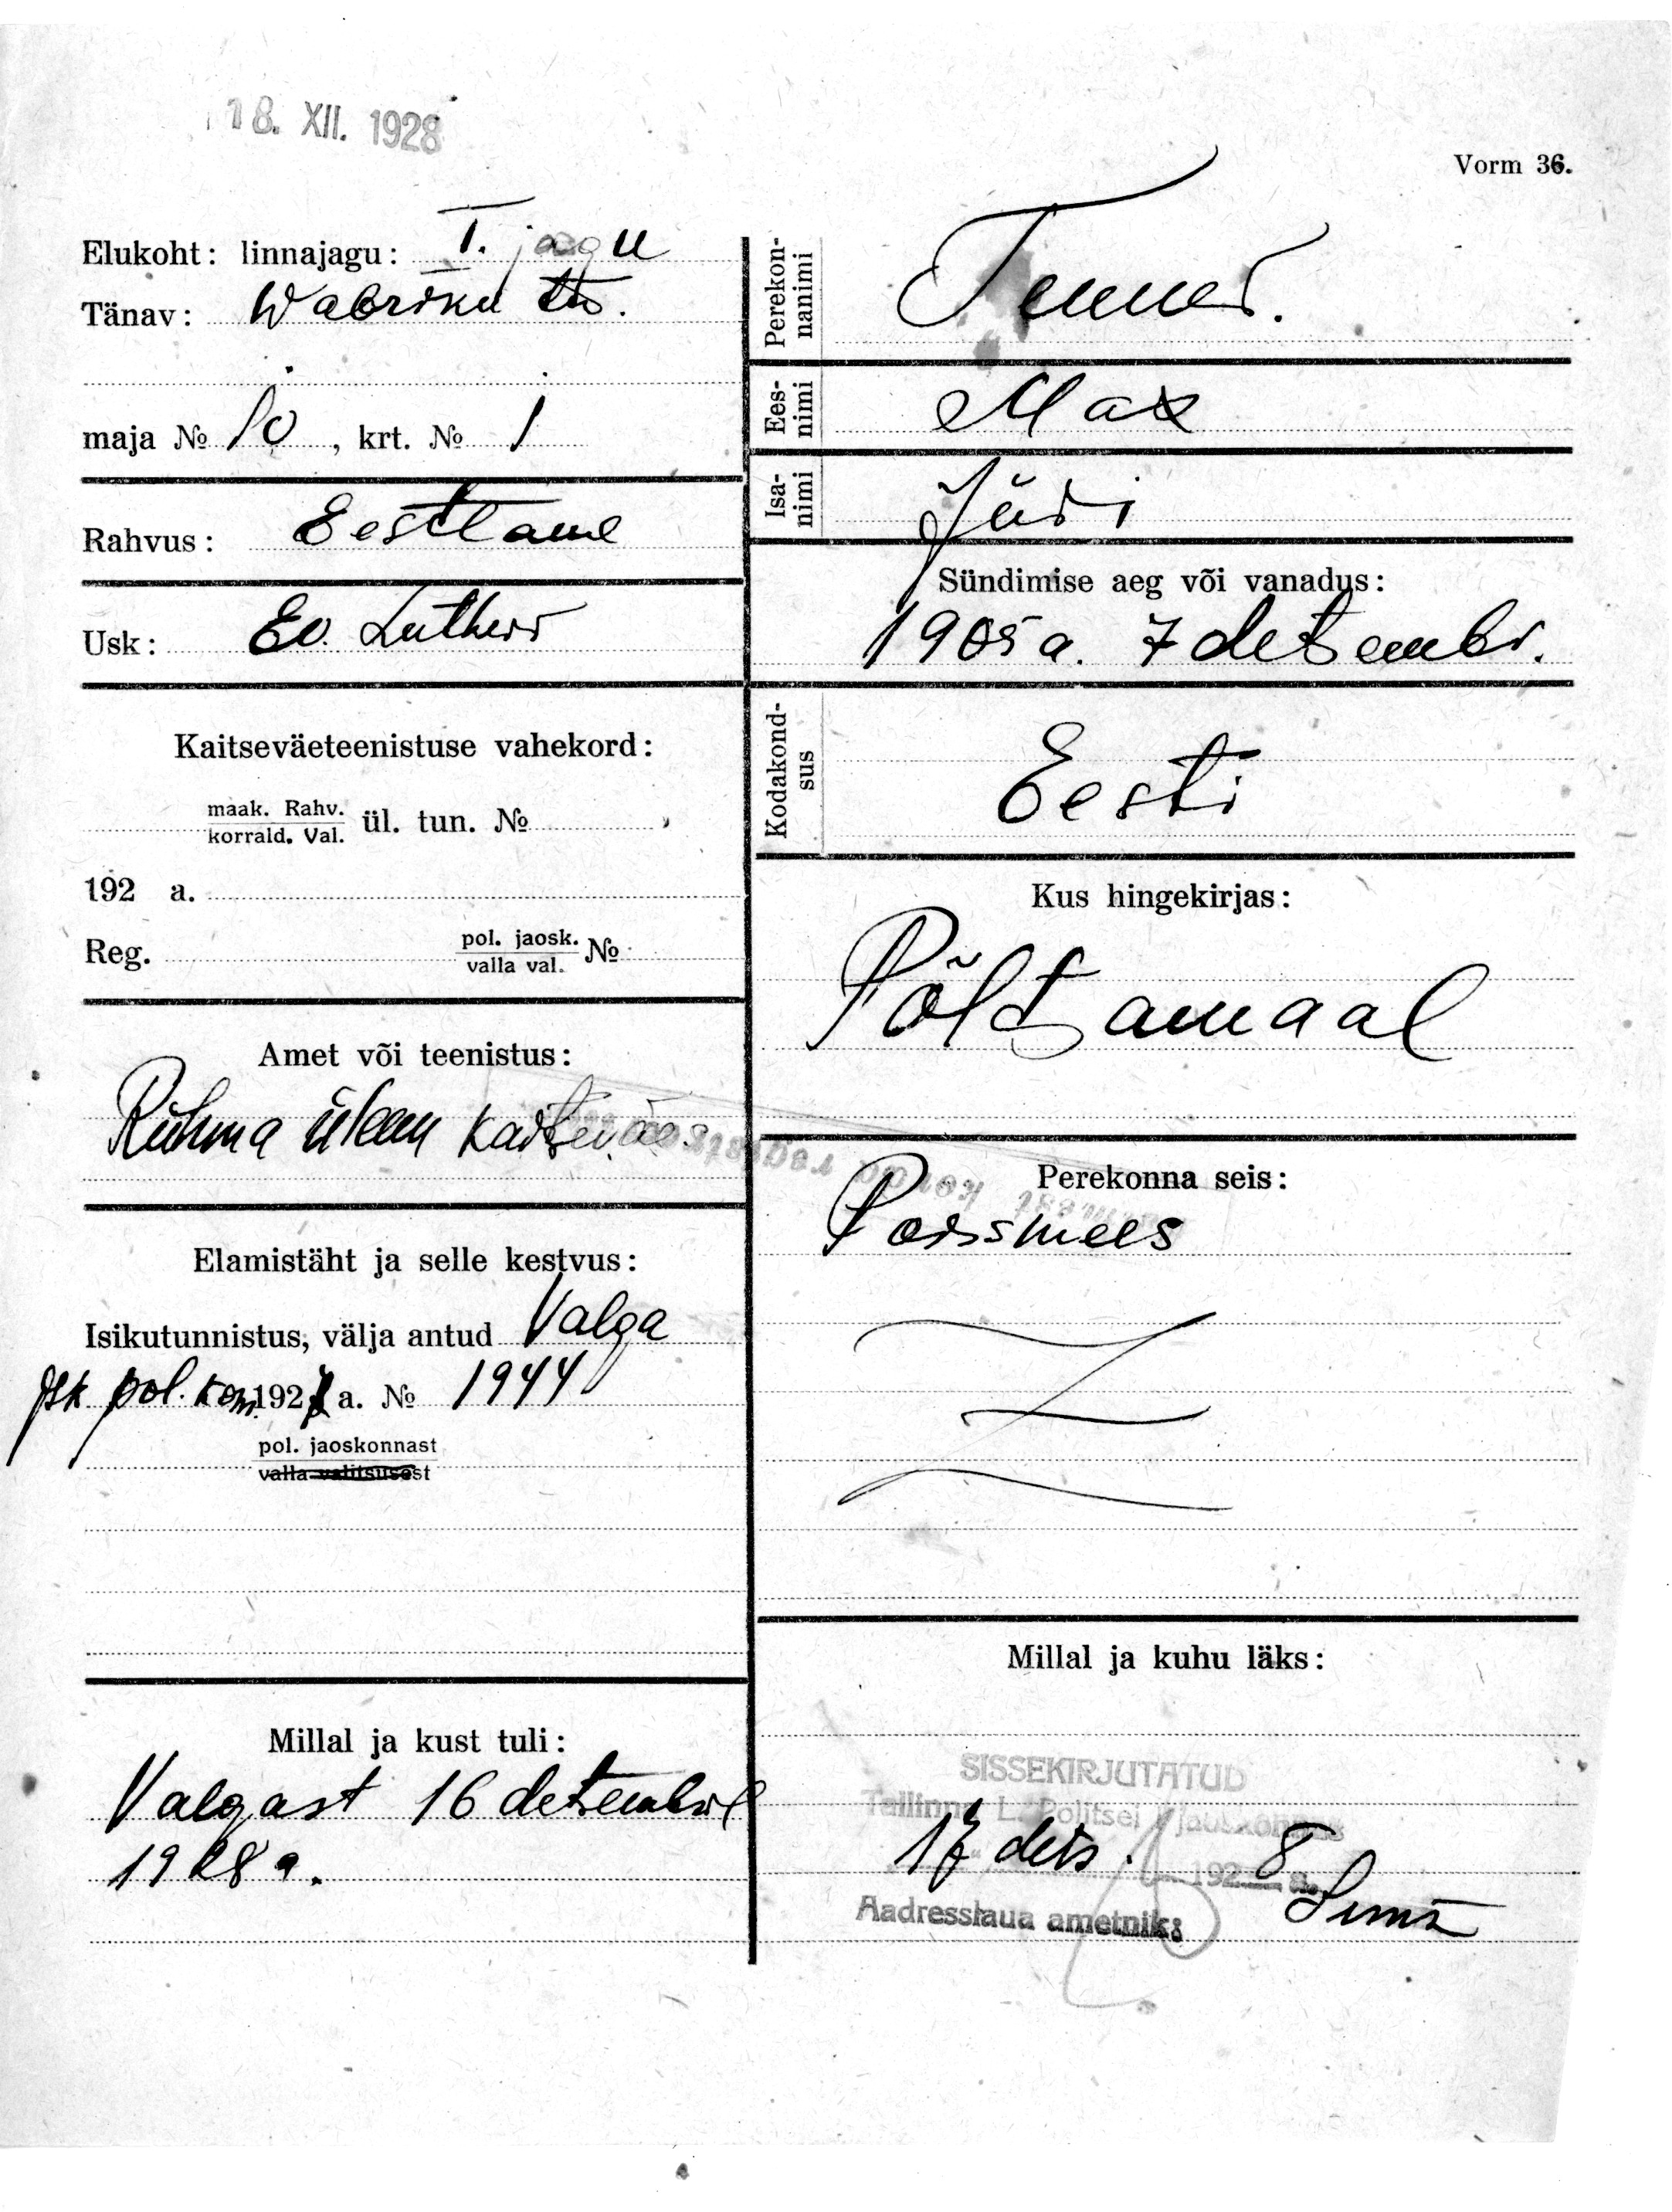 18. XII. 1928
Vorm 36.
Elukoht: linnajagu: I. jagu
Tänav: Wabriku tn.
maja № 10, krt. № 1
Rahvus: Eestlane
Usk: Ev. Lutheri
Kaitseväeteenistuse vahekord:
maak. Rahv.
korrald. Val. ül. tun. №
192 a.
Reg. pol. jaosk. №
valla val.
Amet või teenistus:
Rühma ülem kaitseväes
Elamistäht ja selle kestvus:
Isikutunnistus, välja antud Valga
jsk pol. kom. 1927 a. № 1944
pol. jaoskonnast
valla valitsusest
Millal ja kust tuli:
Valgast 16 detsembril
1928 a.
Perekon-
nanimi
Tenner.
Ees-
nimi
Max
Isa-
nimi
Jüri
Sündimise aeg või vanadus:
1905 a. 7 detsembr.
Kodakond-
sus
Eesti
Kus hingekirjas:
Põltsamaal
Perekonna seis:
Poissmees
Millal ja kuhu läks:
SISSEKIRJUTATUD
Tallinna L. Politsei jaoskonnas
17 dets. 1928 a.
Aadresslaua ametnik: